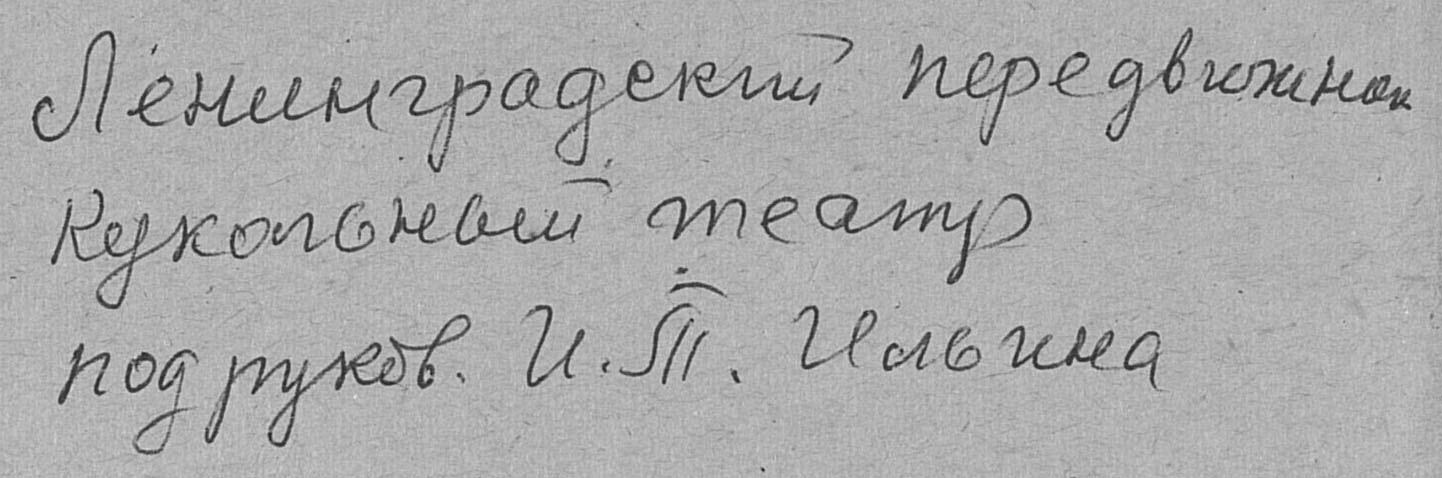 Ленинградский передвижной
Кукольный театр
под руков. И.П. Ильина